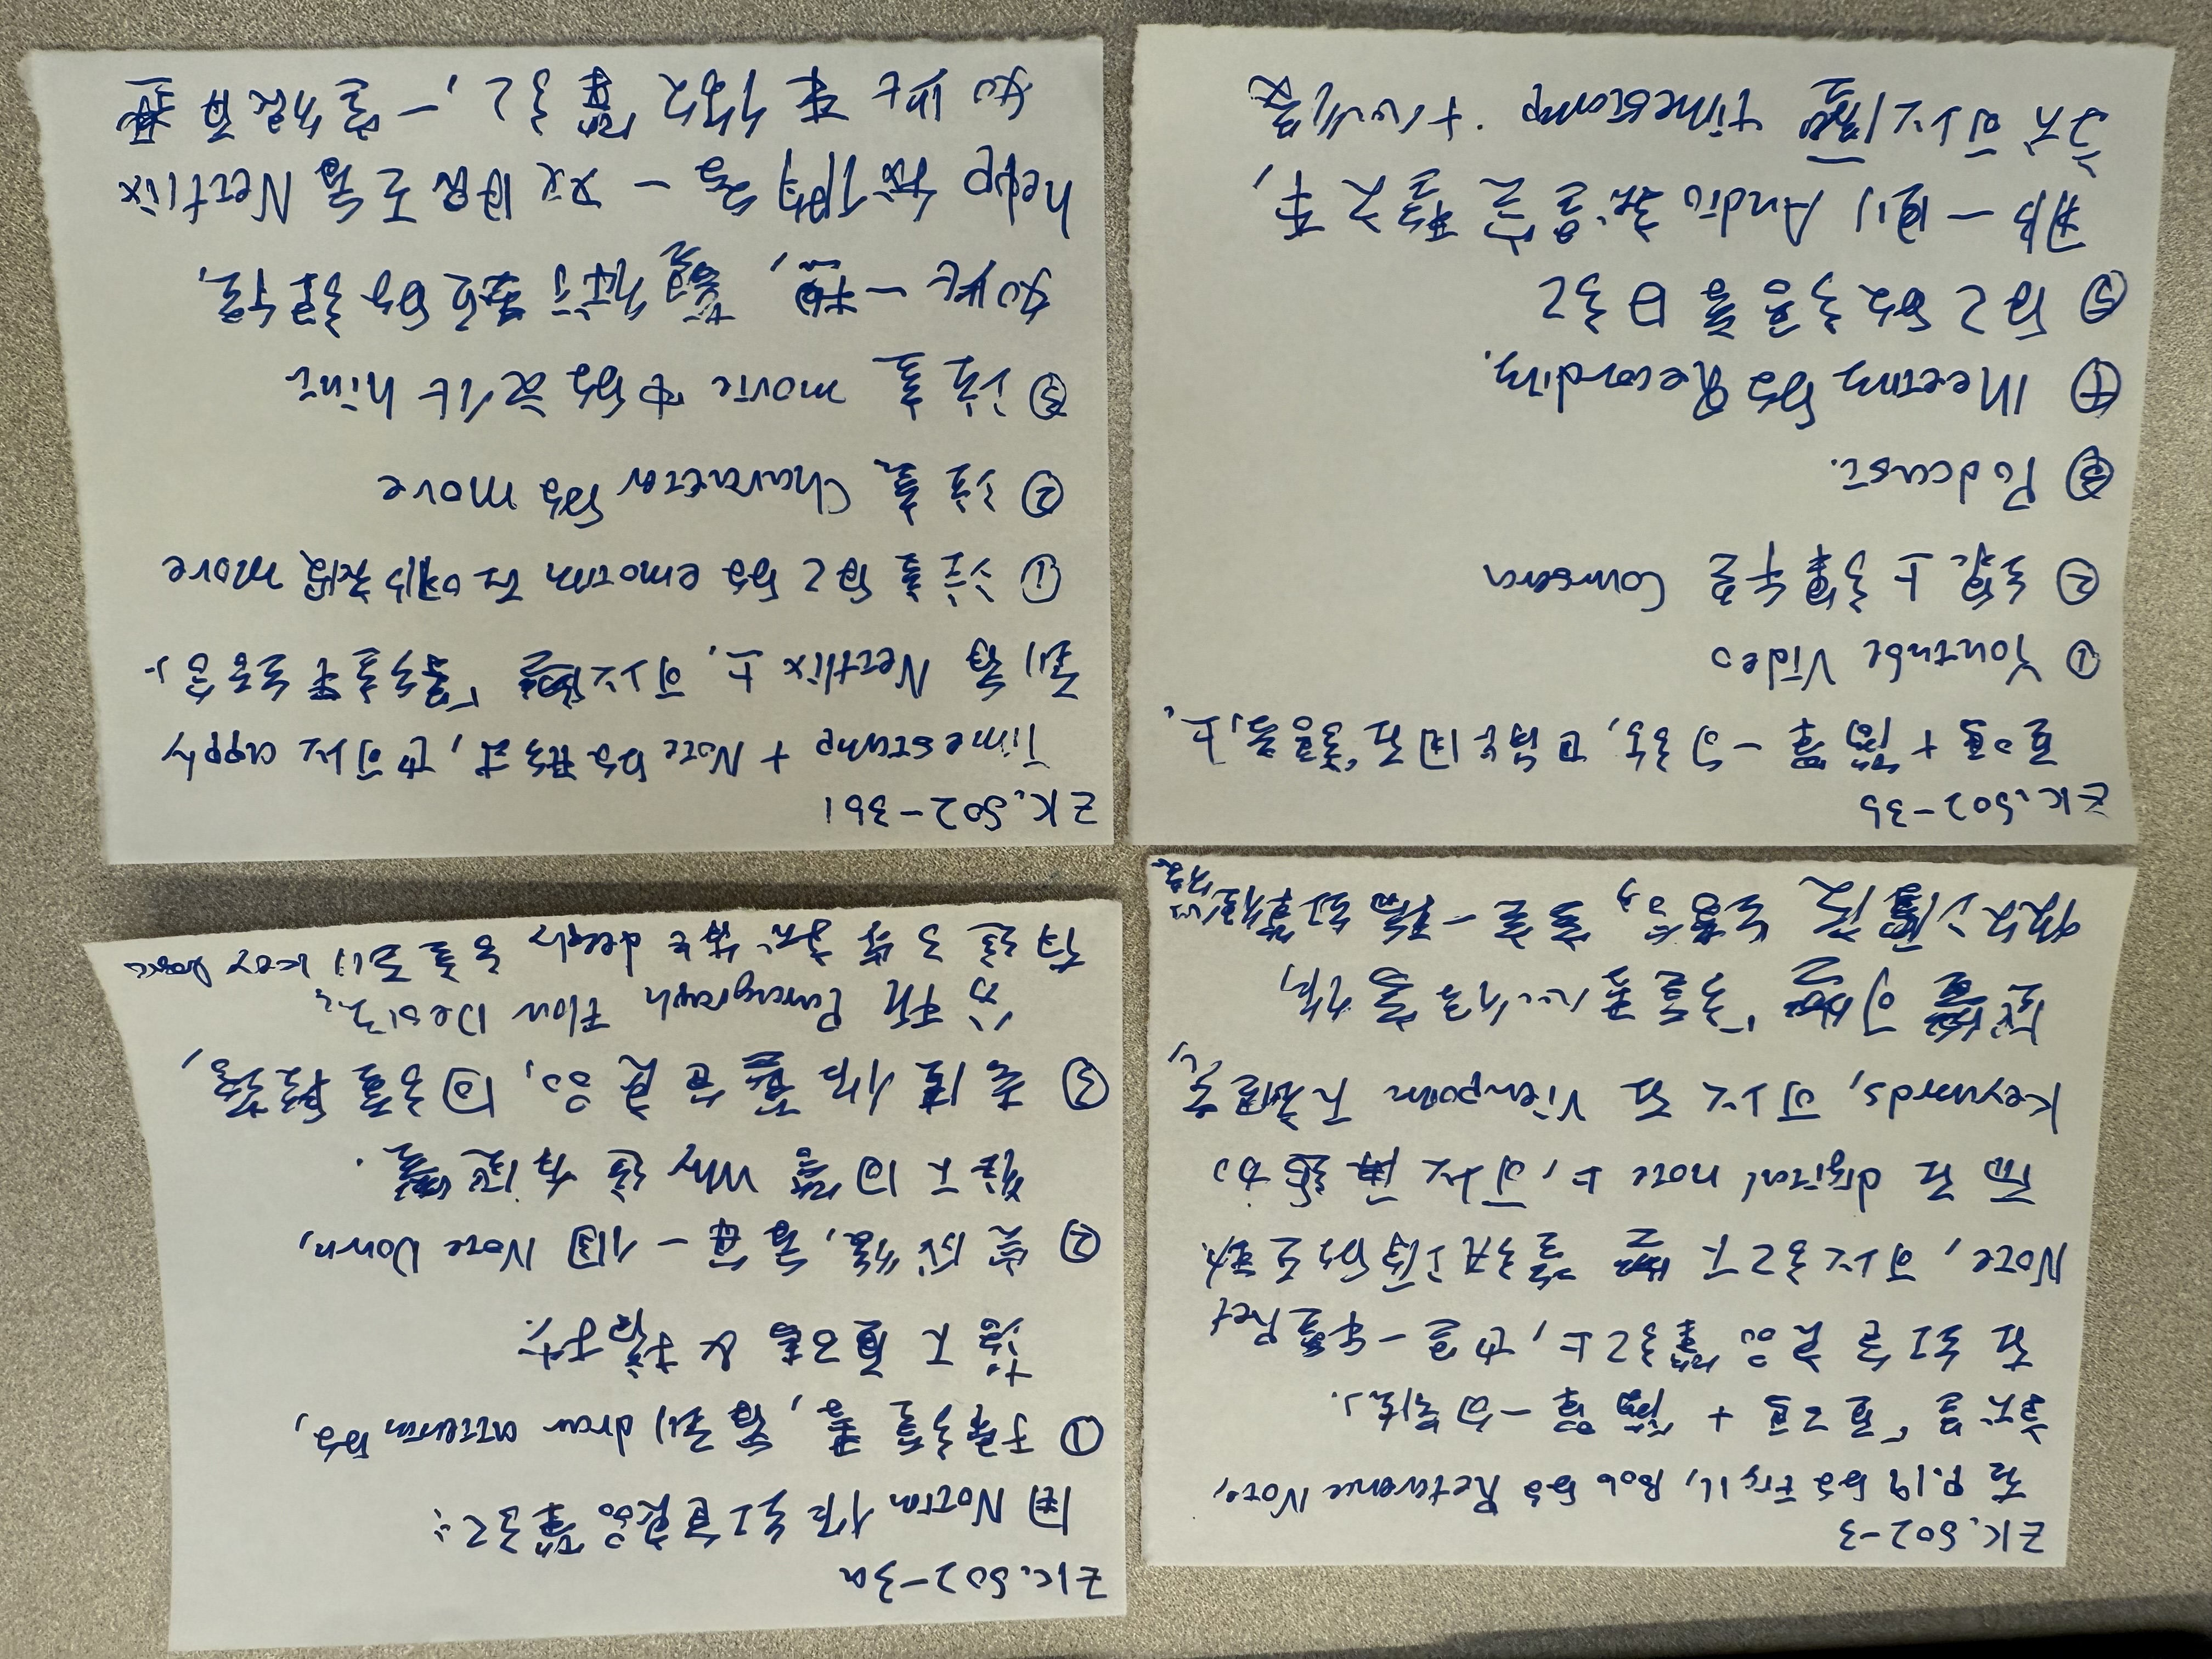 ZK.S02-3
在 P.19 的 Fig 11, Bob 的 Reference Note,
就是「頁碼 + 簡單一句話」.
在紅色良品筆記上, 也是一種 Ref
Note, 可以記下
而在 digital note 上, 可以再追加
Keywords, 可以在 Viewpoint 下補充,
感覺可「讀書心得寫作」
結合, 一輪紅筆
ZK.S02-3a
用 Notion 作紅色良品筆記:
① 掃讀書, 看到 draw attention 的,
落下頁碼 & 摘抄
② 完成後, 看每一個 Note Down,
往下回答 Why 這有感覺.
③ 去度作藍色良品, 回讀段落,
分析 Paragraph Flow Design,
有這了步就能 deeply 讀到 key
ZK.S02-3b
頁碼 + 簡單一句話, 也能用在「語音」上.
① Youtube Video
② 線上課程 Coursera
③ Podcast.
④ Meeting 的 Recording.
⑤ 自己的語音日記
那一則 Audio 就是完整文本,
就可以 timestamp + 心得
ZK.S02-3b1
Timestamp + Note 的形式, 也可以 apply
到看 Netflix 上, 可以「結合」
① 注意自己的 emotion 在哪被 move
② 注意 Character 的 move
③ 注意 movie 中的文化 hint
如此一想, 藝術類的課程,
help 我們多一双眼去看 Netflix
如此來做筆記, 一定很有趣